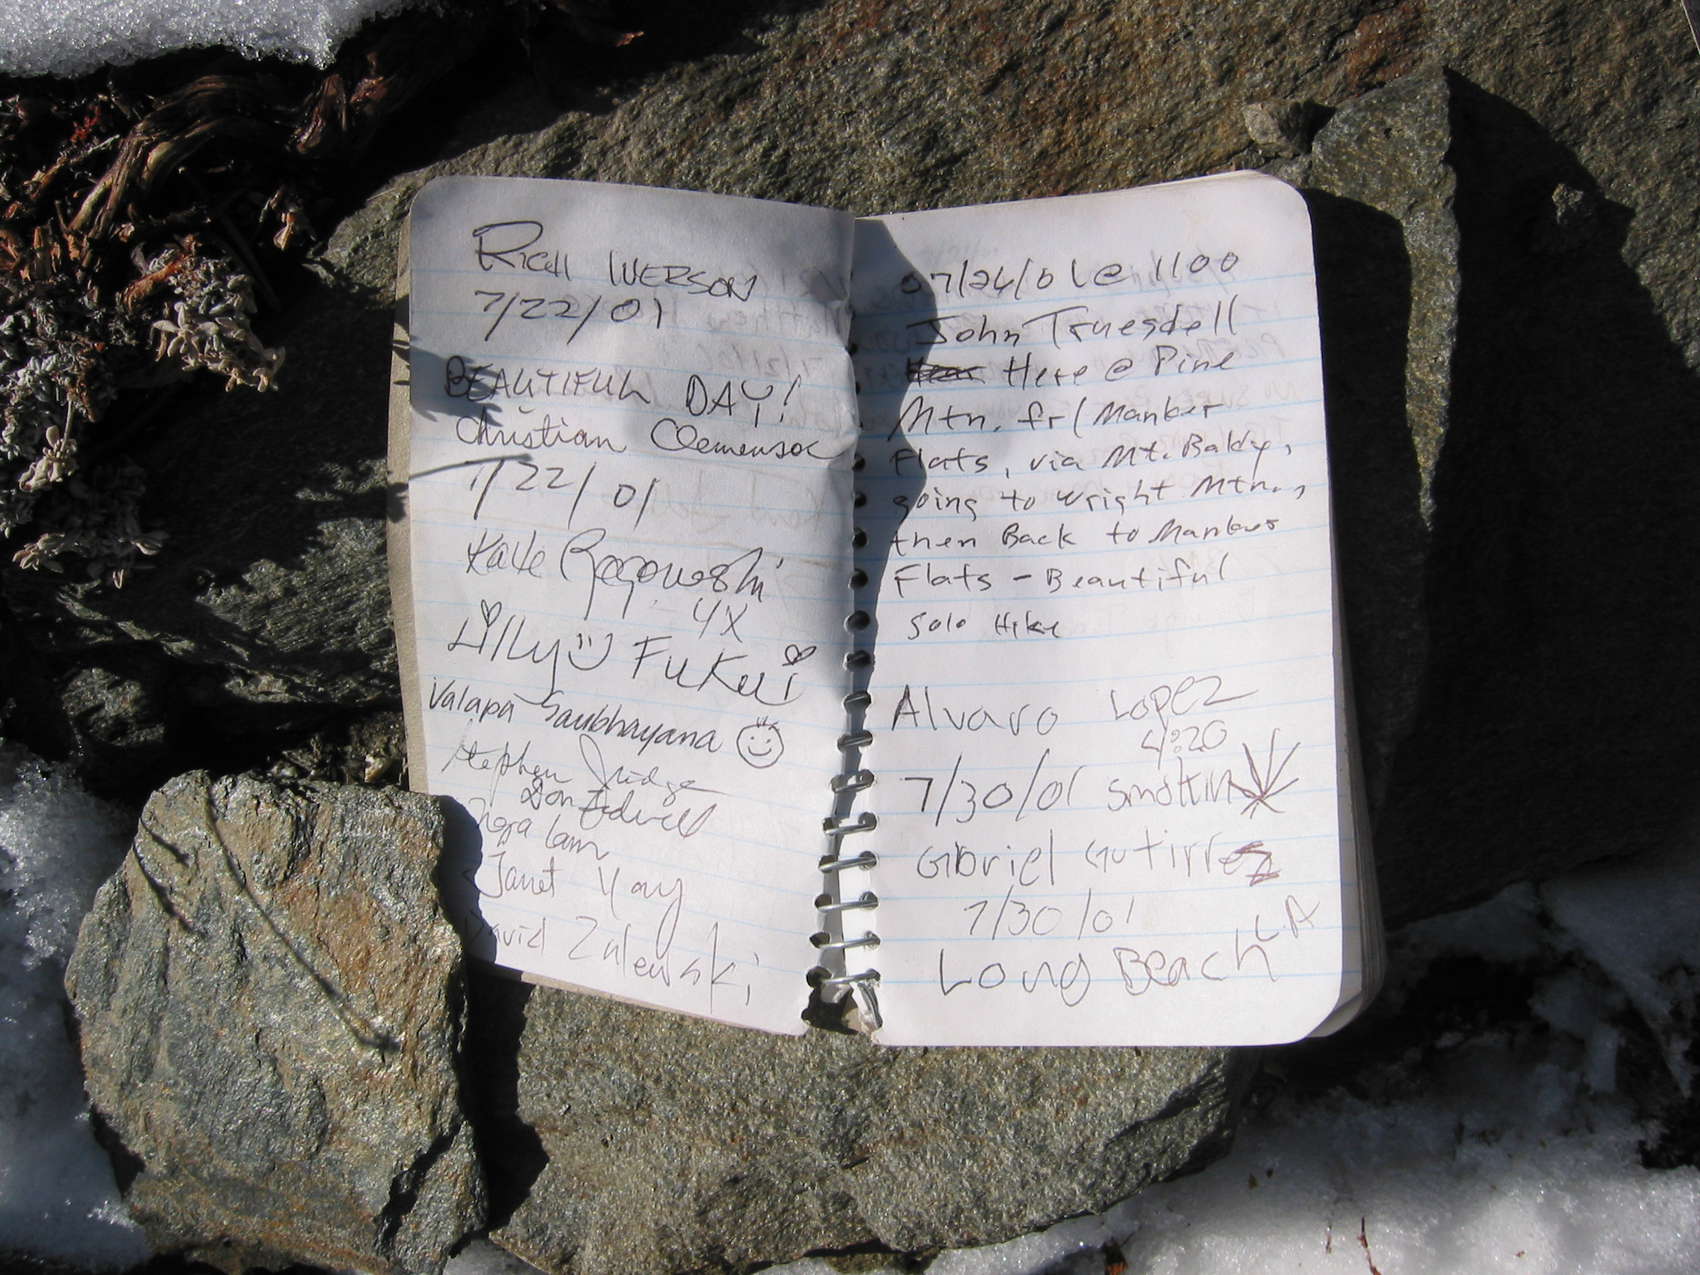 RICH IVERSON
7/22/01
BEAUTIFUL DAY!
Christian
7/22/01
Kate
4X
Lilly Fukui
Valapa Saubhayana
Stephen Judge
Don
Lam
Janet Kay
David Zalewski
07/26/01 @ 1100
John Truesdell
Here @ Pine
Mtn. fr/ Manker
Flats, via Mt. Baldy,
going to Wright Mtn.,
then Back to Mankers
Flats - Beautiful
Solo Hike
Alvaro Lopez
4:20
7/30/01 Smokin
Gbriel Gutirrez
7/30/01
L.A
Long Beach